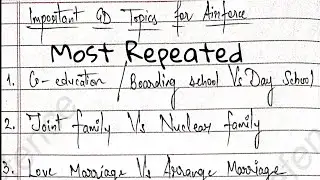 Important GD Topics for Airforce
Most Repeated
1. Co-education / Boarding school Vs Day School
2. Joint family Vs Nuclear family
3. Love Marriage Vs Arrange Marriage